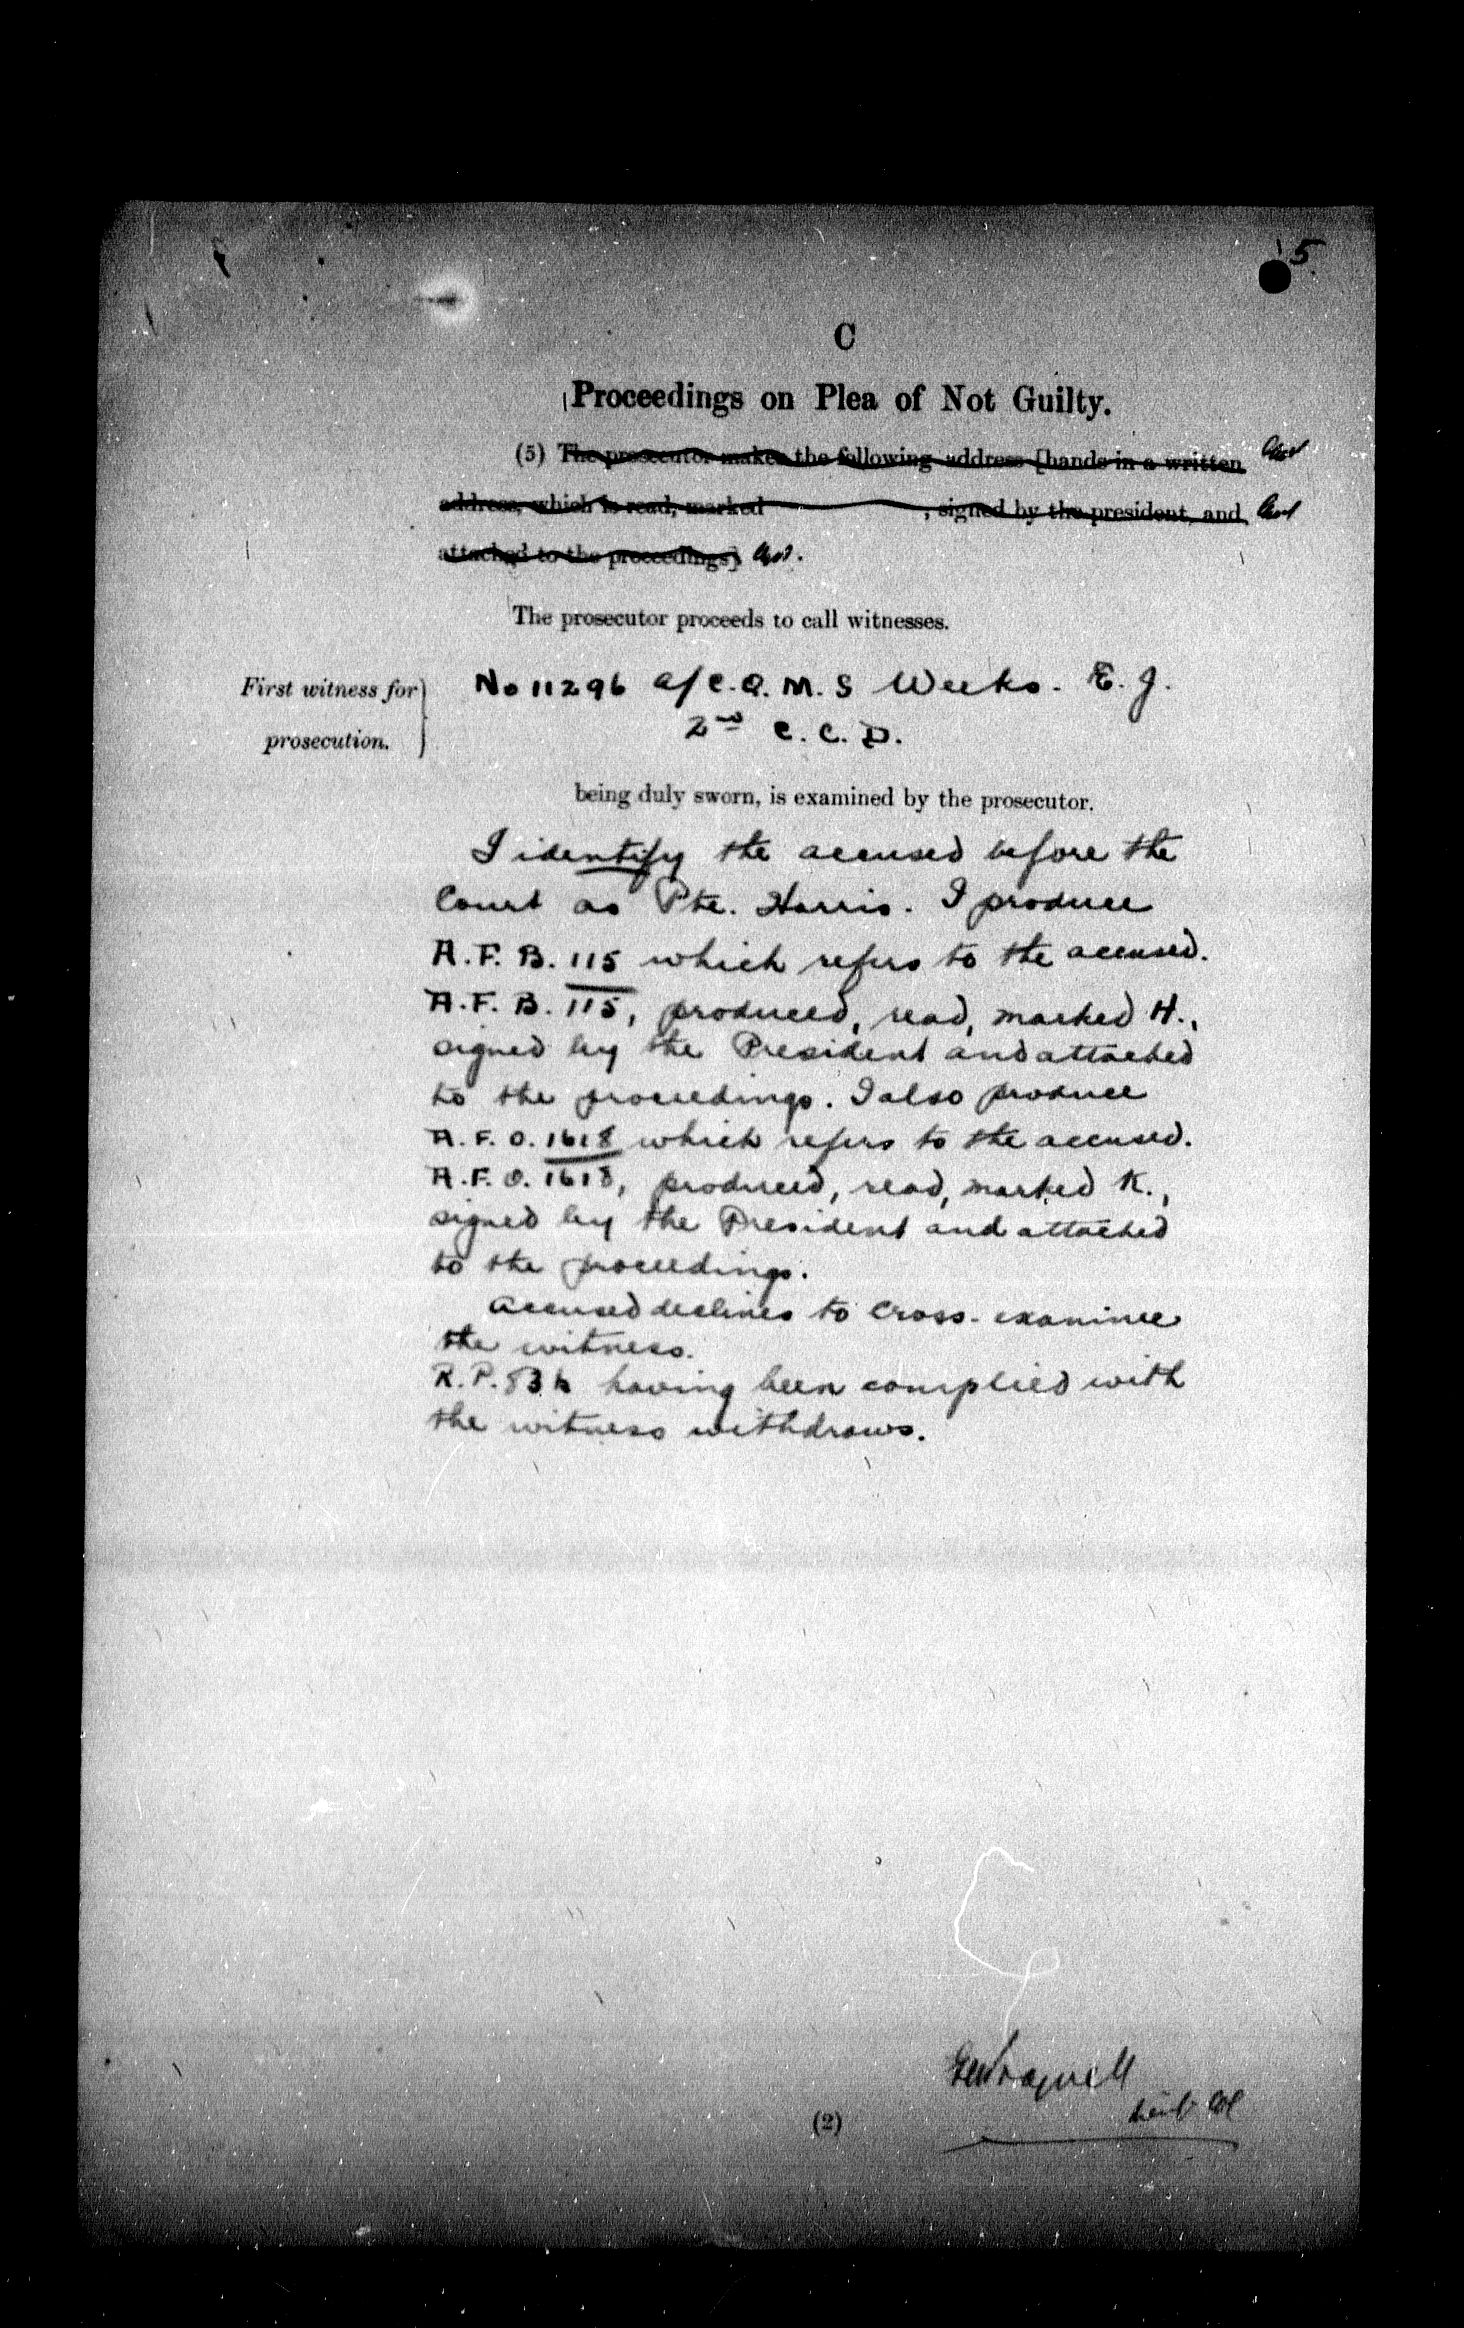 15.
C
Proceedings on Plea of Not Guilty.
(5) The prosecutor makes the following address [hands in a written
address, which is read, marked , signed by the president, and
attached to the proceedings].
The prosecutor proceeds to call witnesses.
First witness for
prosecution.
No 11296 a/C.Q.M.S Weeks. E. J.
2nd C. C. D.
being duly sworn, is examined by the prosecutor.
I identify the accused before the
Court as Pte. Harris. I produce
A.F.B. 115 which refers to the accused.
A.F.B. 115, produced, read, marked H.,
signed by the President and attached
to the proceedings. I also produce
A.F.O. 1618 which refers to the accused.
A.F.O. 1618, produced, read, marked K.,
signed by the President and attached
to the proceedings.
Accused declines to cross-examine
the witness.
R.P. 83 having been complied with
the witness withdraws.
Lieut Col
(2)